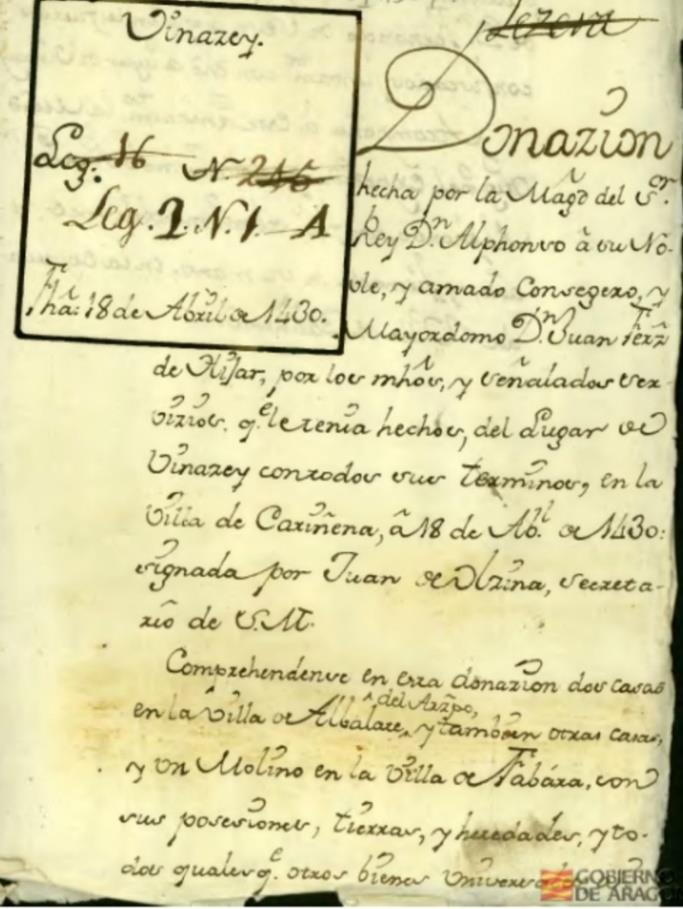 Vinazey.
Leg. 16 N 246
Leg. 1. N. 1. A
Fha: 18 de Abril de 1430.
Lezera
Donazion
hecha por la Magd. del Sor.
Rey Dn. Alphonso â su No-
ble, y amado Consegero, y
Mayordomo Dn. Juan Ferrz
de Hijar, por los mhôs, y señalados ser-
vizios. qe. le tenia hechos, del Lugar de
Vinazey con todos sus terminos, en la
Villa de Cariñena, â 18 de Abl. de 1430:
signada por Juan de Olzina, Secreta-
rio de S.M.
Comprehendense en esta donazion dos casas
en la Villa de Albalate, del Arzpo, y tambien otras casas,
y un Molino en la Villa de Fabára, con
sus posesiones, tierras, y heredades, y to-
dos qualesqe. otros bienes
GOBIERNO
DE ARAGON